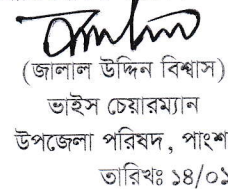 (জালাল উদ্দিন বিশ্বাস)
ভাইস চেয়ারম্যান
উপজেলা পরিষদ, পাংশ
তারিখঃ ১৪/০১